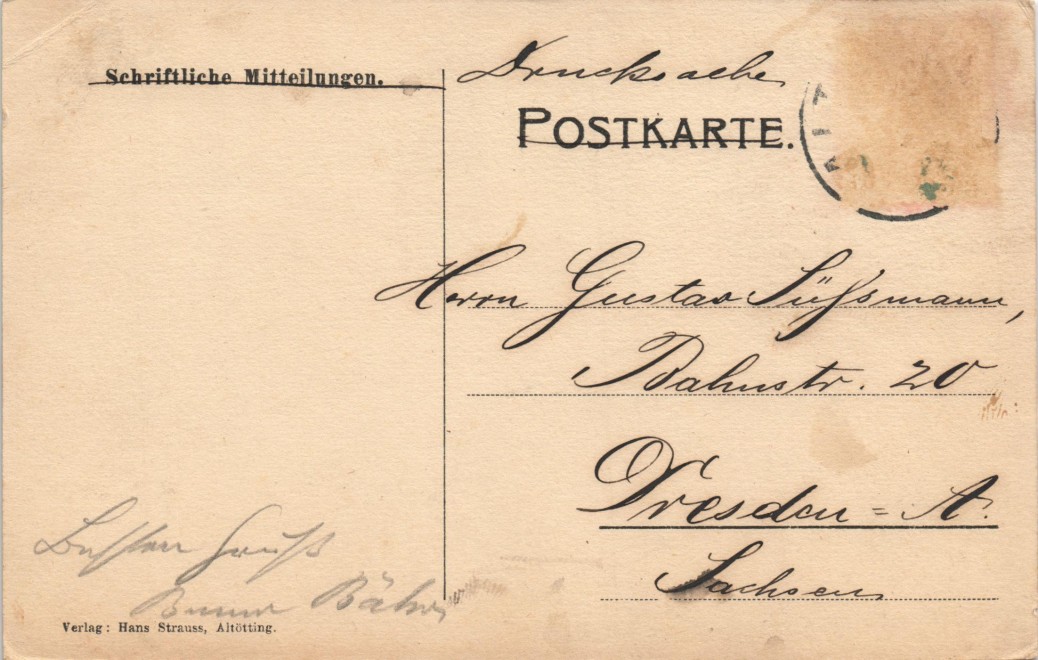 Schriftliche Mitteilungen.
Drucksache
POSTKARTE.
Herrn Gustav Süßsmann,
Bahnstr. 20
Dresden=A.
Sachsen
Besten Gruß
Bähr
Verlag: Hans Strauss, Altötting.